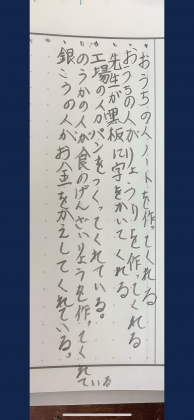 おうちの人ノートを作ってくれる
おうちの人がりょうりを作ってくれる
先生が黒板に字をかいてくれる
工場の人がパンをつくってくれている。
のうかの人が食のげんざいりょうを作ってくれている
銀こうの人がお金をかえしてくれている。